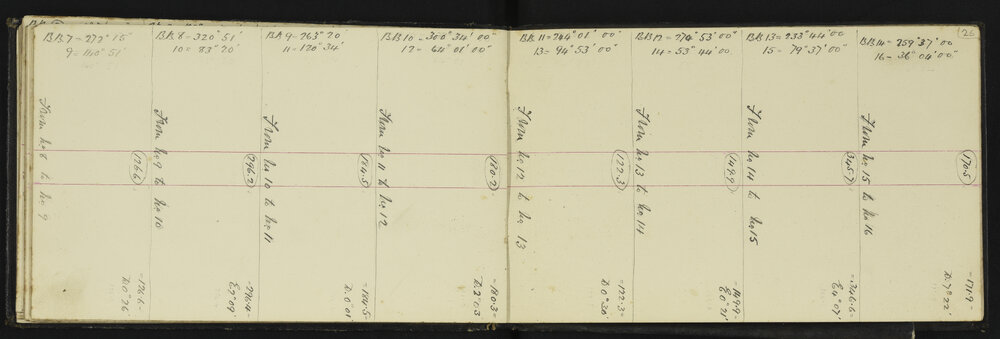 26
BB.7 = 272° 15'
9 = 140° 51'
From No 8 to No 9
176.6
= 176.6
D. 0° 26'
BB 8 = 320° 51'
10 = 83° 20'
From No 9 to No 10
296.2
= 296.4
E 2° 09'
BB 9 = 263° 20'
11 = 120° 34'
From No 10 to No 11
184.5
= 184.5
D. 0° 01'
BB 10 = 300° 34' 00"
12 = 64° 01' 00"
From No 11 to No 12
180.2
= 180.3
D. 2° 03'
BB 11 = 244° 01' 00"
13 = 94° 53' 00"
From No 12 to No 13
122.3
= 122.3
D 0° 30'
BB 12 = 274° 53' 00"
14 = 53° 44' 00
From No 13 to No 14
149.9
= 149.9
E 0° 21'
BB 13 = 233° 44' 00
15 = 79° 37' 00"
From No 14 to No 15
345.7
= 346.6
E 4° 07'
BB 14 = 259° 37' 00
16 = 36° 04' 00"
From No 15 to No 16
170.5
= 171.9
D. 7° 22'